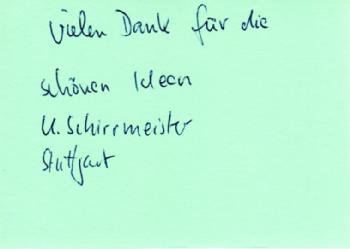 Vielen Dank für die
schönen Ideen
U. Schirrmeister
Stuttgart